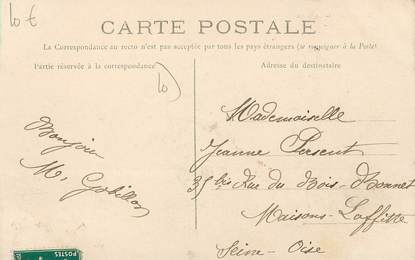 10 €
CARTE POSTALE
La Correspondance au recto n'est pas acceptée par tous les pays étrangers (se renseigner à la Poste)
Partie réservée à la correspondance
Adresse du destinataire
10
Bonjour
M. Gobillon
Mademoiselle
Jeanne Persent
35 bis Rue du Bois-Bonnet
Maisons-Laffitte
Seine-Oise
POSTES